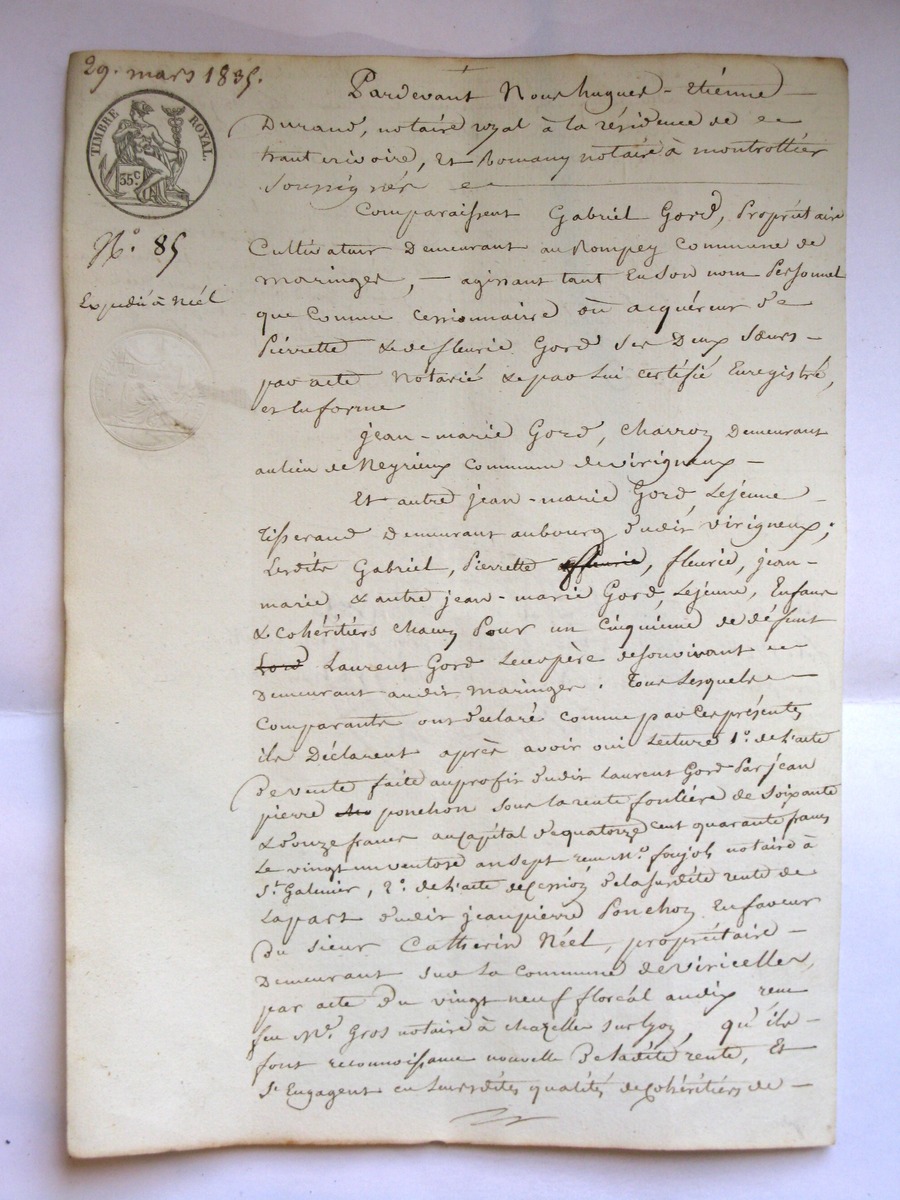 29. mars 1835.
TIMBRE ROYAL.
35 C.
N.º 85
Expédié à Néel
Pardevant Nous hugues-etiénne
Durand, notaire royal à la résidence de
haut rivoire, et Romany notaire à montrottier
soussignés
Comparaissent Gabriel Gord, Propriétaire
Cultivateur Demeurant au Rompey Commune de
maringes, - agissant tant En son nom Personnel
que Comme Cessionnaire où acquéreur de
Pierrette & de fleurie Gord ses Deux Sœurs -
par acte Nótarié & par lui certifié Enregistré,
et En forme
jean-marie Gord, charron Demeurant
au lieu de Neyrieux Commune de virigneux -
Et autre jean-marie Gord, Lejeune -
Tisserand Demeurant au bourg dudit virigneux;
Lesdits Gabriel, Pierrette, fleurie, jean-
marie & autre jean-marie Gord, Lejeune, Enfans
& Cohéritiers chacun Pour un Cinquième de défunt
Laurent Gord Leur père de son vivant
Demeurant audit maringes. Tous Lesquels
Comparants ont déclaré comme par Ces présentes
ils Déclarent après avoir oui Lecture 1.º de l'acte
de vente faite au profit dudit Laurent Gord Par jean
pierre ponchon sous la rente fonciére de Soixante
& douze francs au Capital de quatorze cent quarante francs
Le vingt un ventose an sept reçu M.e foujols notaire à
S.t Galmier, 2.º de l'acte de Cession de la susdite rente de
La part dudit jean pierre Ponchon En faveur
Du sieur Catherin Néel, propriétaire -
Demeurant sur la Commune de Viricelles,
par acte du vingt neuf floréal an dix reçu
feu M.e Gros notaire à chazelles sur Lyon, qu'ils -
font reconnoissance nouvelle de ladite rente, Et
S'Engagent en leursdites qualités de Cohéritiers de -